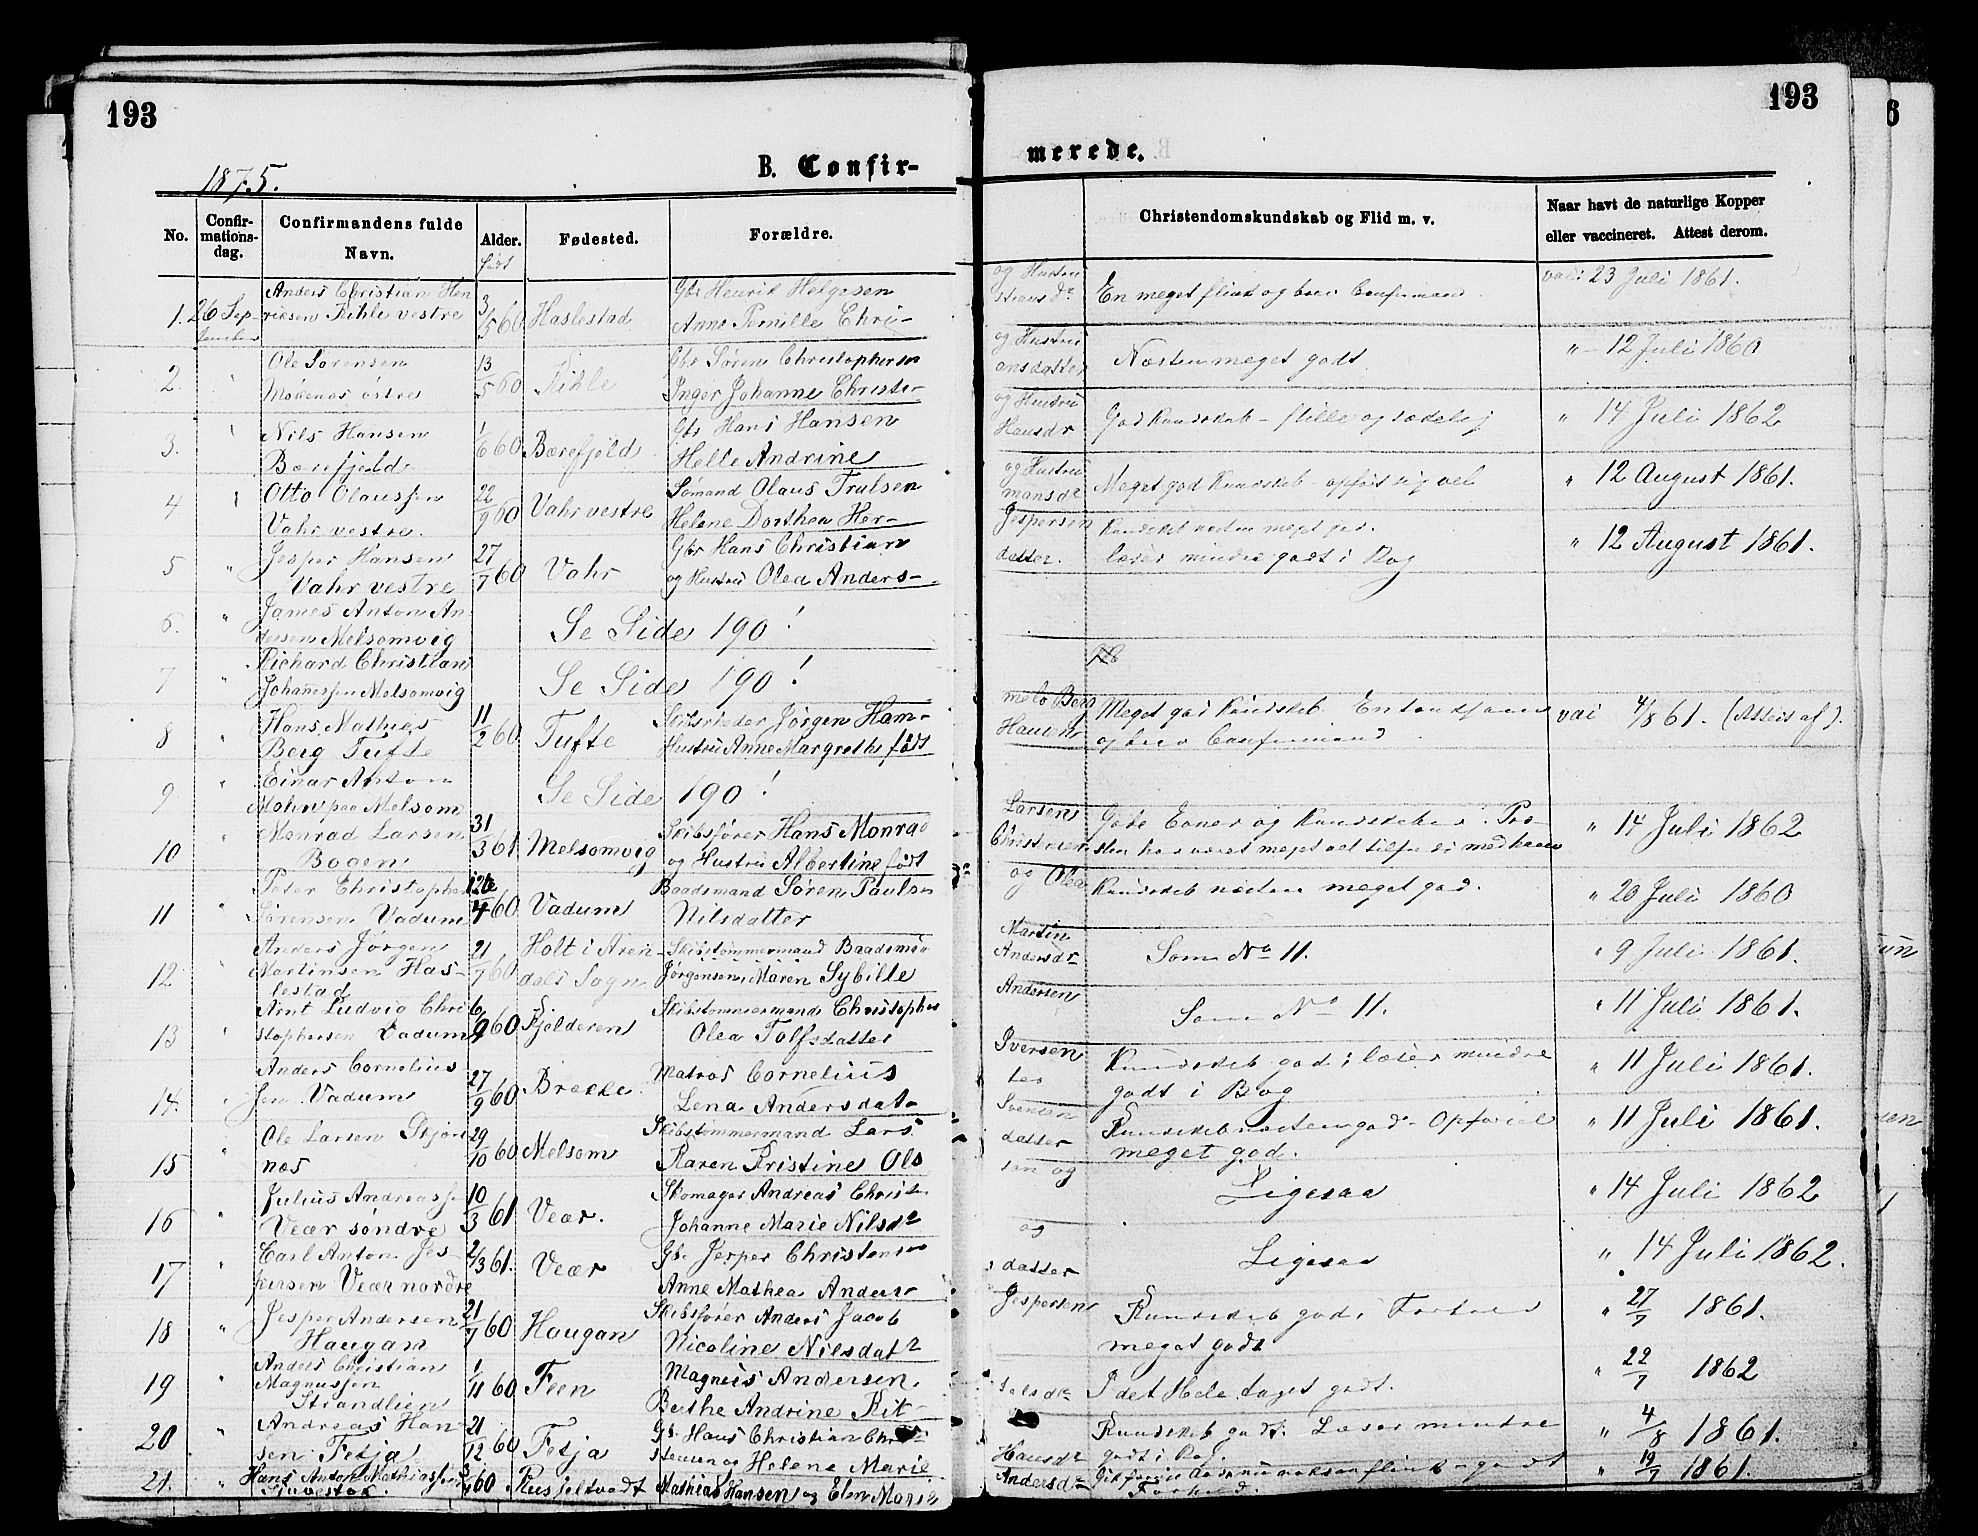 193
193
1875.
B. Confir-
merede.
No.
Confir-
mations-
dag.
Confirmandens fulde
Navn.
Alder.
født
Fødested.
Forældre.
Christendomskundskab og Flid m. v.
Naar havt de naturlige Kopper
eller vaccineret. Attest derom.
1. 26 Sep- Anders Christian Hen 3/5 60 Haslestad Gbr Henrik Helgesen og Hustru
tember ricksen Kihle vestre Anne Pernille Chri- stiansdr En meget flink og brav Confirmand vac: 23 Juli 1861.
2. " Ole Sørensen 13/5 60 Kihle Gbr Søren Christophersen og Hustru
Møkenæs østre Inger Johanne Christi- ansdatter Næsten meget godt " 12 Juli 1860
3. " Nils Hansen 1/6 60. Bærefjeld Gbr Hans Hansen og Hustru
Bærefjeld Helle Andrine Hansdr God Kundskab - stille og sædelig " 14 Juli 1862
4 " Otto Olaussen 22/9 60 Vahr vestre Sømand Olaus Trulsen og Hustru
Vahr vestre. Helene Dorthea Her- mansdr Meget god Kundskab - opført sig vel " 12 August 1861.
5 " Jesper Hansen 27/7 60 Vahr Gbr Hans Christian Jespersen Kundskab næsten meget god.
Vahr vestre og Hustru Olea Anders- datter. læser mindre godt i Bog " 12 August 1861.
6. " James Anton An-
dersen Melsomvig Se Side 190!
7 " Richard Christian
Johannessen Melsomvig Se Side 190!
8 " Hans Mathias 11/2 60. Tufte Skibsrheder Jørgen Ham- melo Berg Meget god Kundskab.
Berg Tufte Hustru Anne Margrethe født Hansen og brav Confirmand. vac 4/8 61. (Attest af).
9 " Einar Anton
paa Melsom Se Side 190!
10 " Monrad Larsen 31/3 61. Melsomvig Skibsfører Hans Monrad Larsen Gode Evner og Kundskaber.
Bogen og Hustru Albertine født Christensen " 14 Juli 1862
11 " Peter Christopher 60. Vadum Baadsmand Søren Paulsen og Olea Kundskab næsten meget god.
Sørensen Vadum Nilsdatter " 20 Juli 1860
12 " Anders Jørgen 21/7 60 Holt i Aren- Skibstømmermand Martin
Martinsen Has- dals Sogn Jørgensen, Maren Sybille Andersdr Som No 11. " 9 Juli 1861.
lestad
13 " Arnt Ludvig Chri 6/9 60 Fjelderen Skibstømmermand Christopher Andersen
stophersen Vadum Olea Tolfsdatter Som No 11. " 11 Juli 1861.
14. " Anders Cornelius 27/9 60 Brekke. Matros Cornelius Iversen Kundskab god; læser mindre
sen Vadum Lena Andersdat- ter godt i Bog " 11 Juli 1861.
15 " Ole Larsen Skjør 29/10 60 Melsom Skibstømmermand Lars Svendsen Kundskab næsten god - Opførsel
næs Karen Kristine Ols datter meget god. " 11 Juli 1861.
16 " Julius Andreassen 10/3 61 Veær. Skomager Andreas Christen sen og
Veær søndre Johanne Marie Nilsdr Ligesaa " 14 Juli 1862
17 " Carl Anton Jes- 2/3 61. Veær Gbr Jesper Christensen og
persen Veær nordre Anne Mathea Anders datter Ligesaa " 14 Juli 1862.
18 " Jesper Andersen 21/7 60 Haugan Skibsfører Anders Jacob Jespersen Kundskab god;
Haugan Nicoline Nilsdatr meget godt " 27/7 1861.
19 " Anders Christian 1/11 60 Feen Magnus Andersen.
Magnussen Berthe Andrine Kit- I det Hele taget godt. " 22/7 1862
Strandlien
20 " Andreas Han- 21/12 60 Fetja Gb. Hans Christian Chri- Kundskab godt. Læser mindre
sen Fetja stensen og Helene Marie Hansdr godt i Bog. " 4/8 1861.
21. " Hans Anton Mathiassen 60 Mathias Hansen og Elen Marie Andersdr " 19/7 1861.